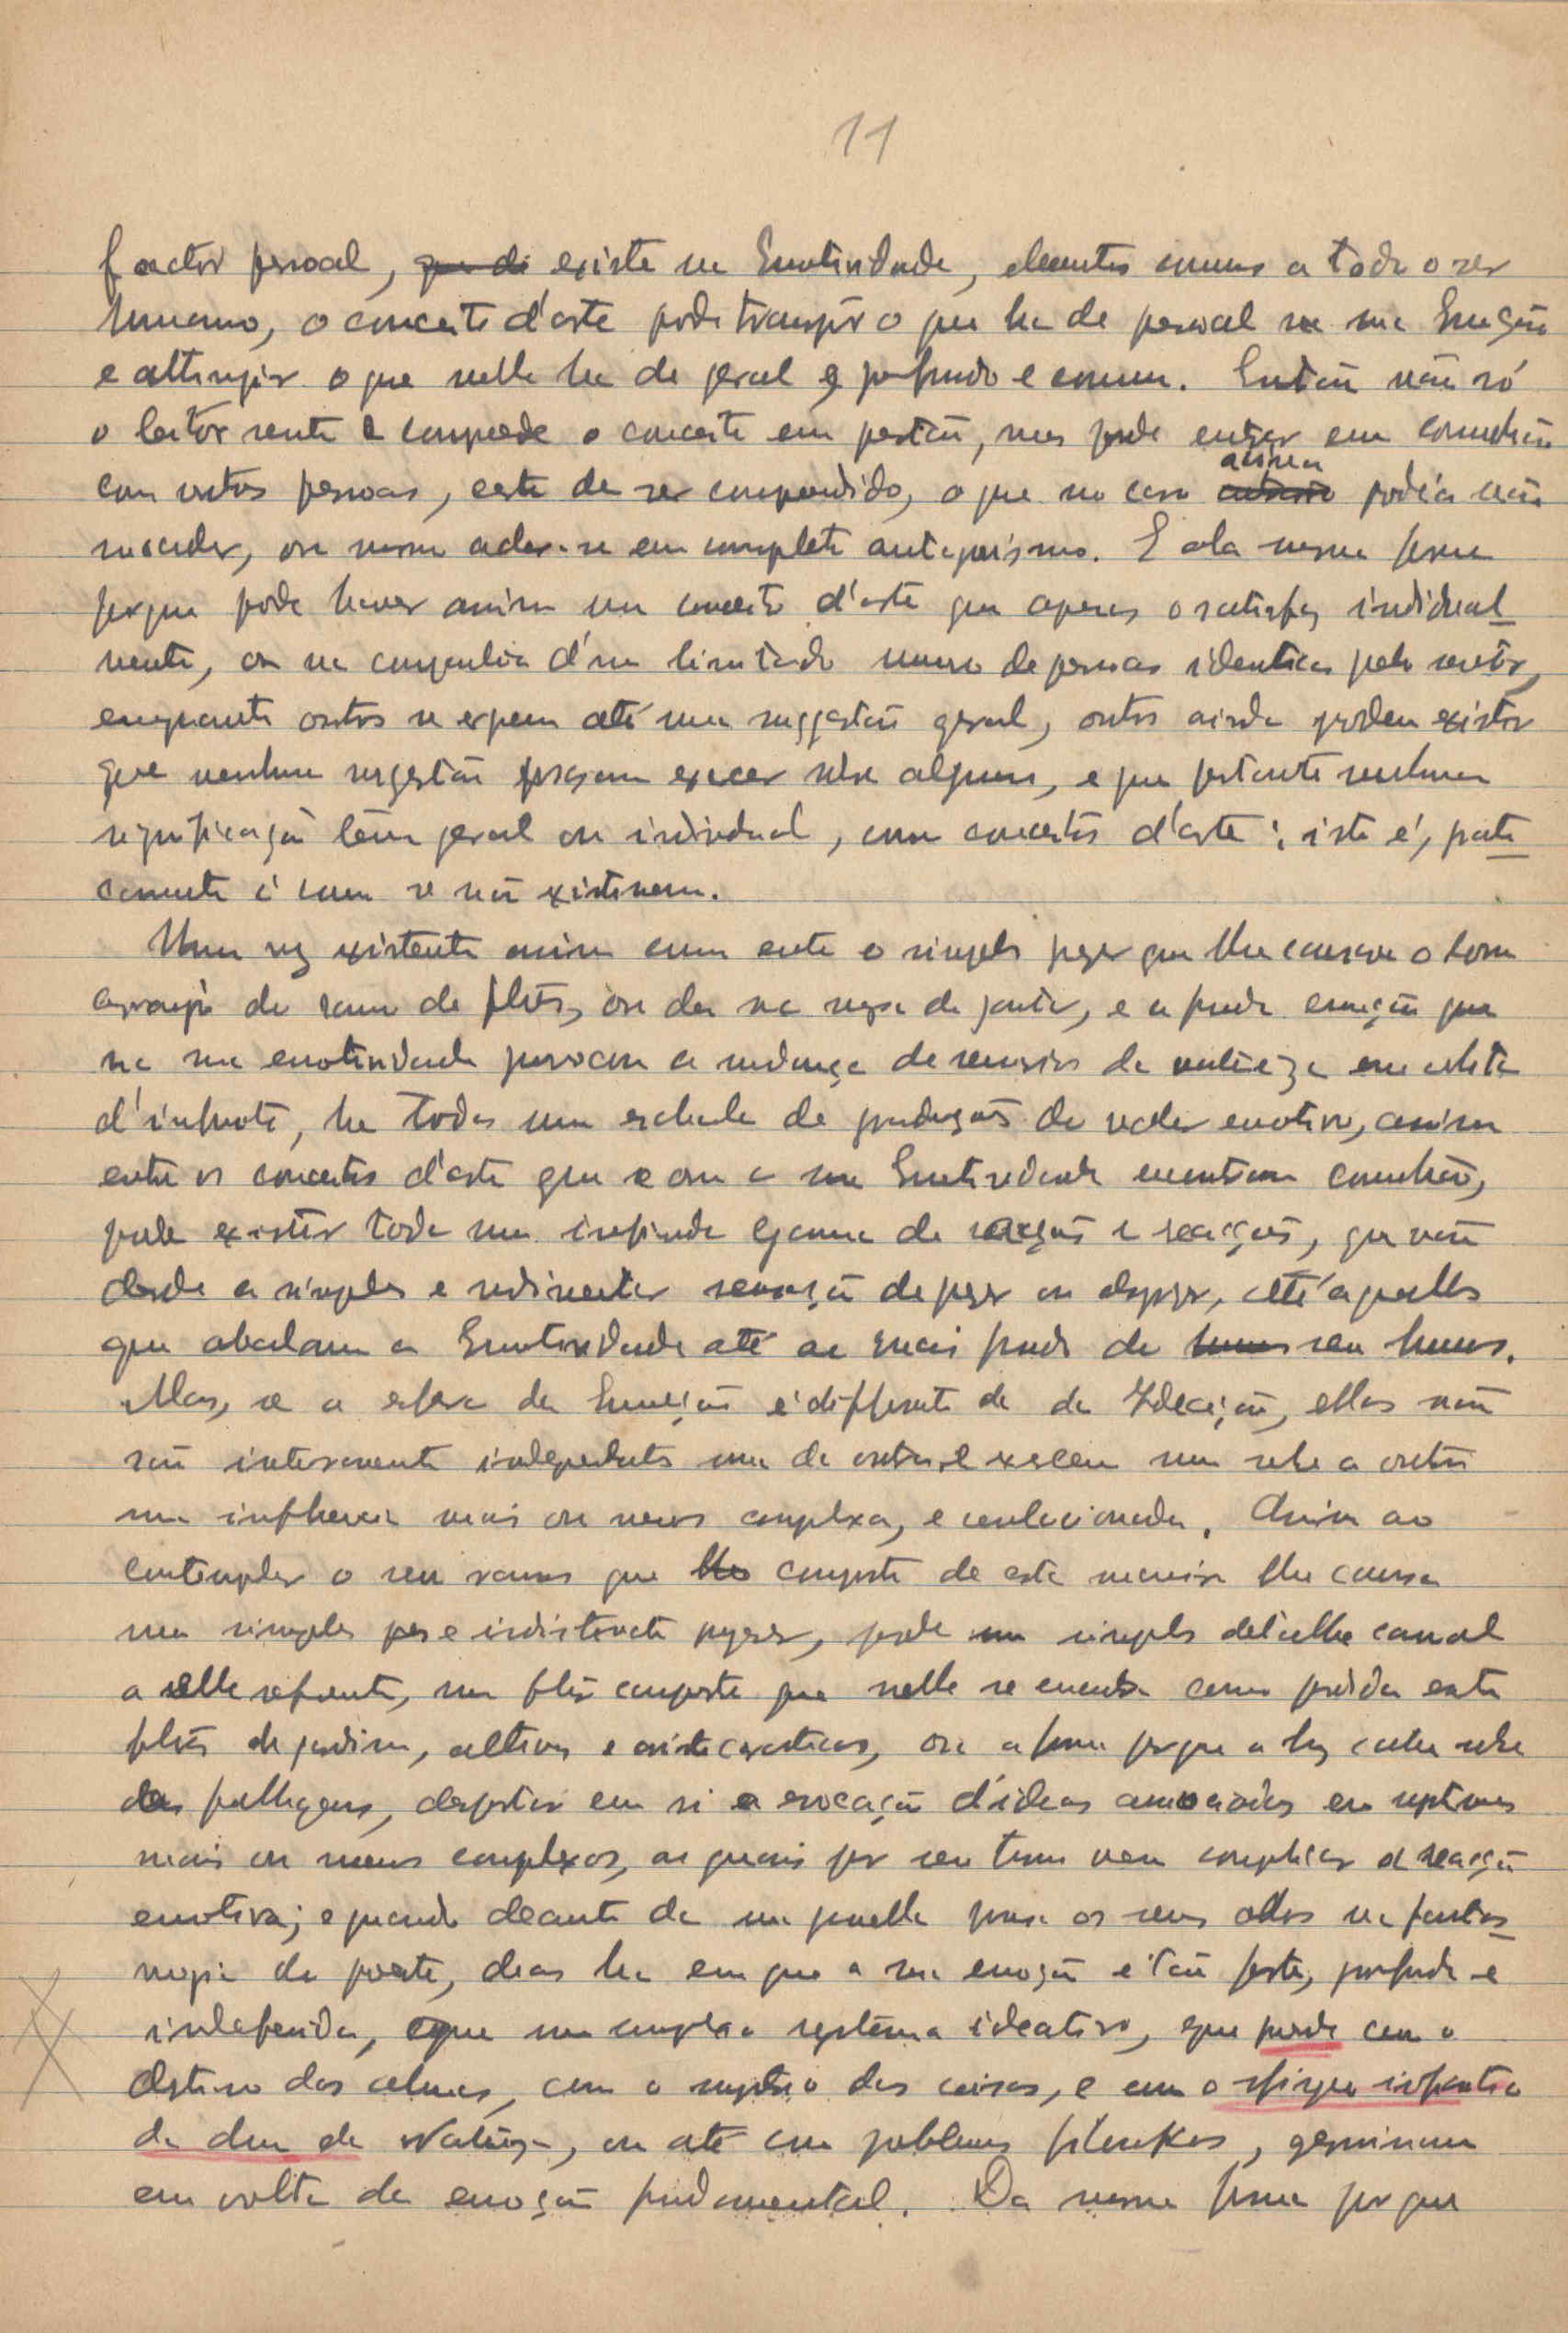 11
factor pessoal, que de existe na Emotividade, elementos comuns a todo o ser
humano, o concerto d'arte pode transpôr o que ha de pessoal na sua Emoção
e attingir o que nella ha de geral e profundo e comum. Então não só
o leitor sente e comprehende o concerto em questão, mas pode entrar em comunhão
com outras pessoas, certo de ser comprendido, o que no caso assima podia não
suceder, ou mesmo achar-se em completo antagonismo. E da mesma forma
porque pode haver assim um concerto d'arte que apenas o satisfaz individual
mente, ou na companhia d'um limitado numero de pessoas identicas pelo sentir,
emquanto outros se erguem até uma suggestão geral, outros ainda podem existir
que nenhuma sugestão possam exercer sobre alguem, e que portanto nenhuma
significação têm geral ou individual, como concertos d'arte; isto é, prati
camente é como se não existissem.
Uma vez existente assim como entre o simples prazer que lhe causava o bom
arranjo do ramo de flôres, ou da sua mesa de jantar, e a funda emoção que
na sua emotividade provocou a mudança de scenarios da natureza em
, ha toda uma eschala de graduações do valor emotivo, assim
entre os concertos d'arte que com a sua Emotividade encontram comunhão,
pode existir toda uma infinda gamma de reacções, que vão
desde a simples e rudimentar sensação de prazer ou desprazer, até áquellas
que abalam a Emotividade até ao mais fundo do seu humus.
Mas, se a esfera da Emoção é differente da da Ideação, ellas não
são inteiramente independentes uma da outra e exercem uma sobre a outra
uma influencia mais ou menos complexa, e correlacionada. Assim ao
contemplar o seu ramo que composto de esta maneira lhe causa
um simples e indistincto prazer, pode um simples detalhe casual
a elle referente, uma flôr campestre que nella se encontra como perdida entre
flôres de jardim, altivas e aristocraticas, ou a forma porque a luz cahe sobre
as folhagens, despertar em si a evocação d'ideas associadas em systemas
mais ou menos complexos, as quais por seu turno vem complicar a reacção
emotiva; e quando deante da sua janella pousa os seus olhos na fantas
magia do poente, dias ha em que a sua emoção é tão forte, profunda e
indefenida, que um complexo systema ideativo, que prende com o
destino das almas, com o mysterio das coisas, e com o
da Natureza, ou até com problemas filosoficos, germinam
em volta da emoção fundamental. Da mesma forma porque